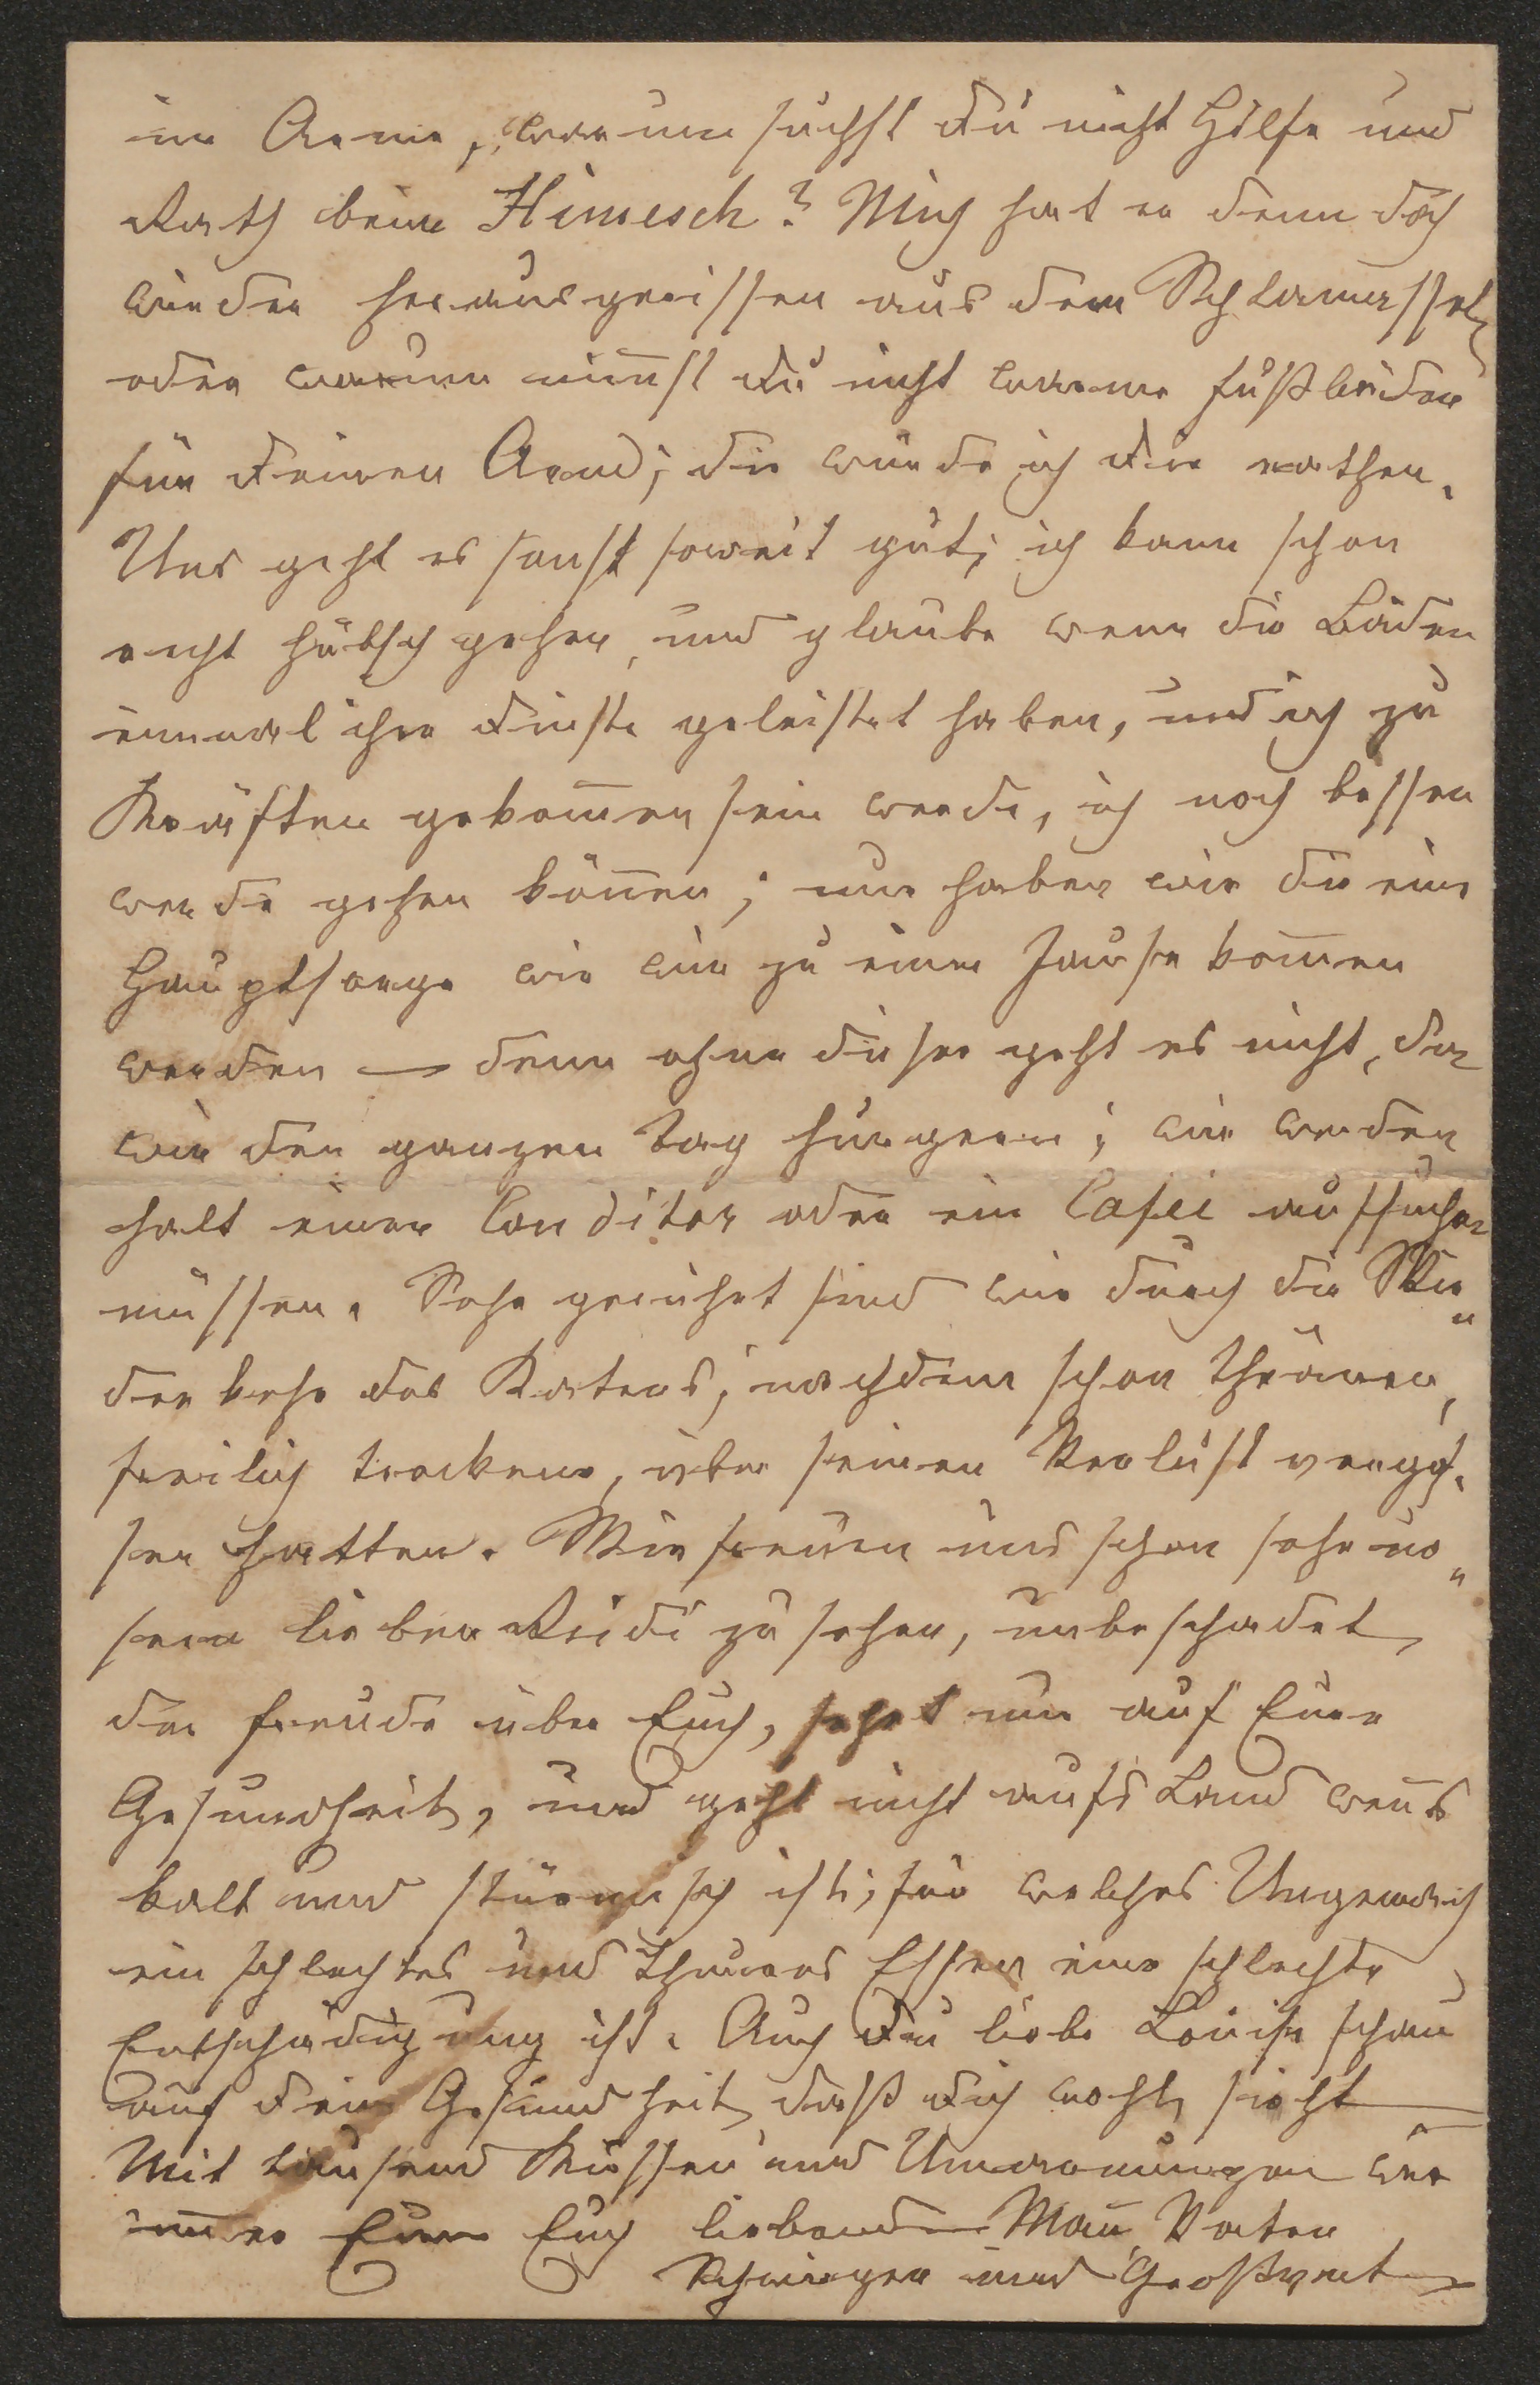 im Arme, warum suchst Du nicht Hilfe und
Rath beim Himesch? Mich hat er denn doch
wieder herausgerissen aus dem Schlamassel,
oder warum nim̅st Du nicht warme Fußbäder
für Deinen Arm; die würde ich Dir rathen.
Uns geht es sonst soweit gut; ich kann schon
recht hübsch gehen, und glaube wenn die Bäder
einmal ihre Dienste geleistet haben, und ich zu
Kräften gekom̅en sein werde, ich noch besser
werde gehen kön̅en; nur haben wir die eine
Hauptsorge wie wir zu einer Jause kom̅en
werden – denn ohne dieser geht es nicht, da
wir den ganzen Tag hungern; wir werden
halt einen Conditor oder ein Cafee aufsuchen
müssen. Sehr gerührt sind wir durch die Wie„
derkehr des Katers, nachdem schon Thränen,
freilich trockene, über seinen Verlust vergos„
sen hatten. Wir freuen uns schon sehr un„
sern lieben Rudi zu sehen, unbeschadet
der Freude über Euch, sehet nur auf Eure
Gesundheit, und geht nicht aufs Land wen̅s
kalt und stürmisch ist, für welches Ungemach
ein schlechtes und theueres Essen eine schlechte
Entschädigung ist. Auch Du liebe Louise schau
auf Deine Gesundheit, daß Dich wohl sieht
Mit tausend Küssen und Umarmungen wie
im̅er Euer Euch liebender Man̅, Vater
Schwieger und Großvater